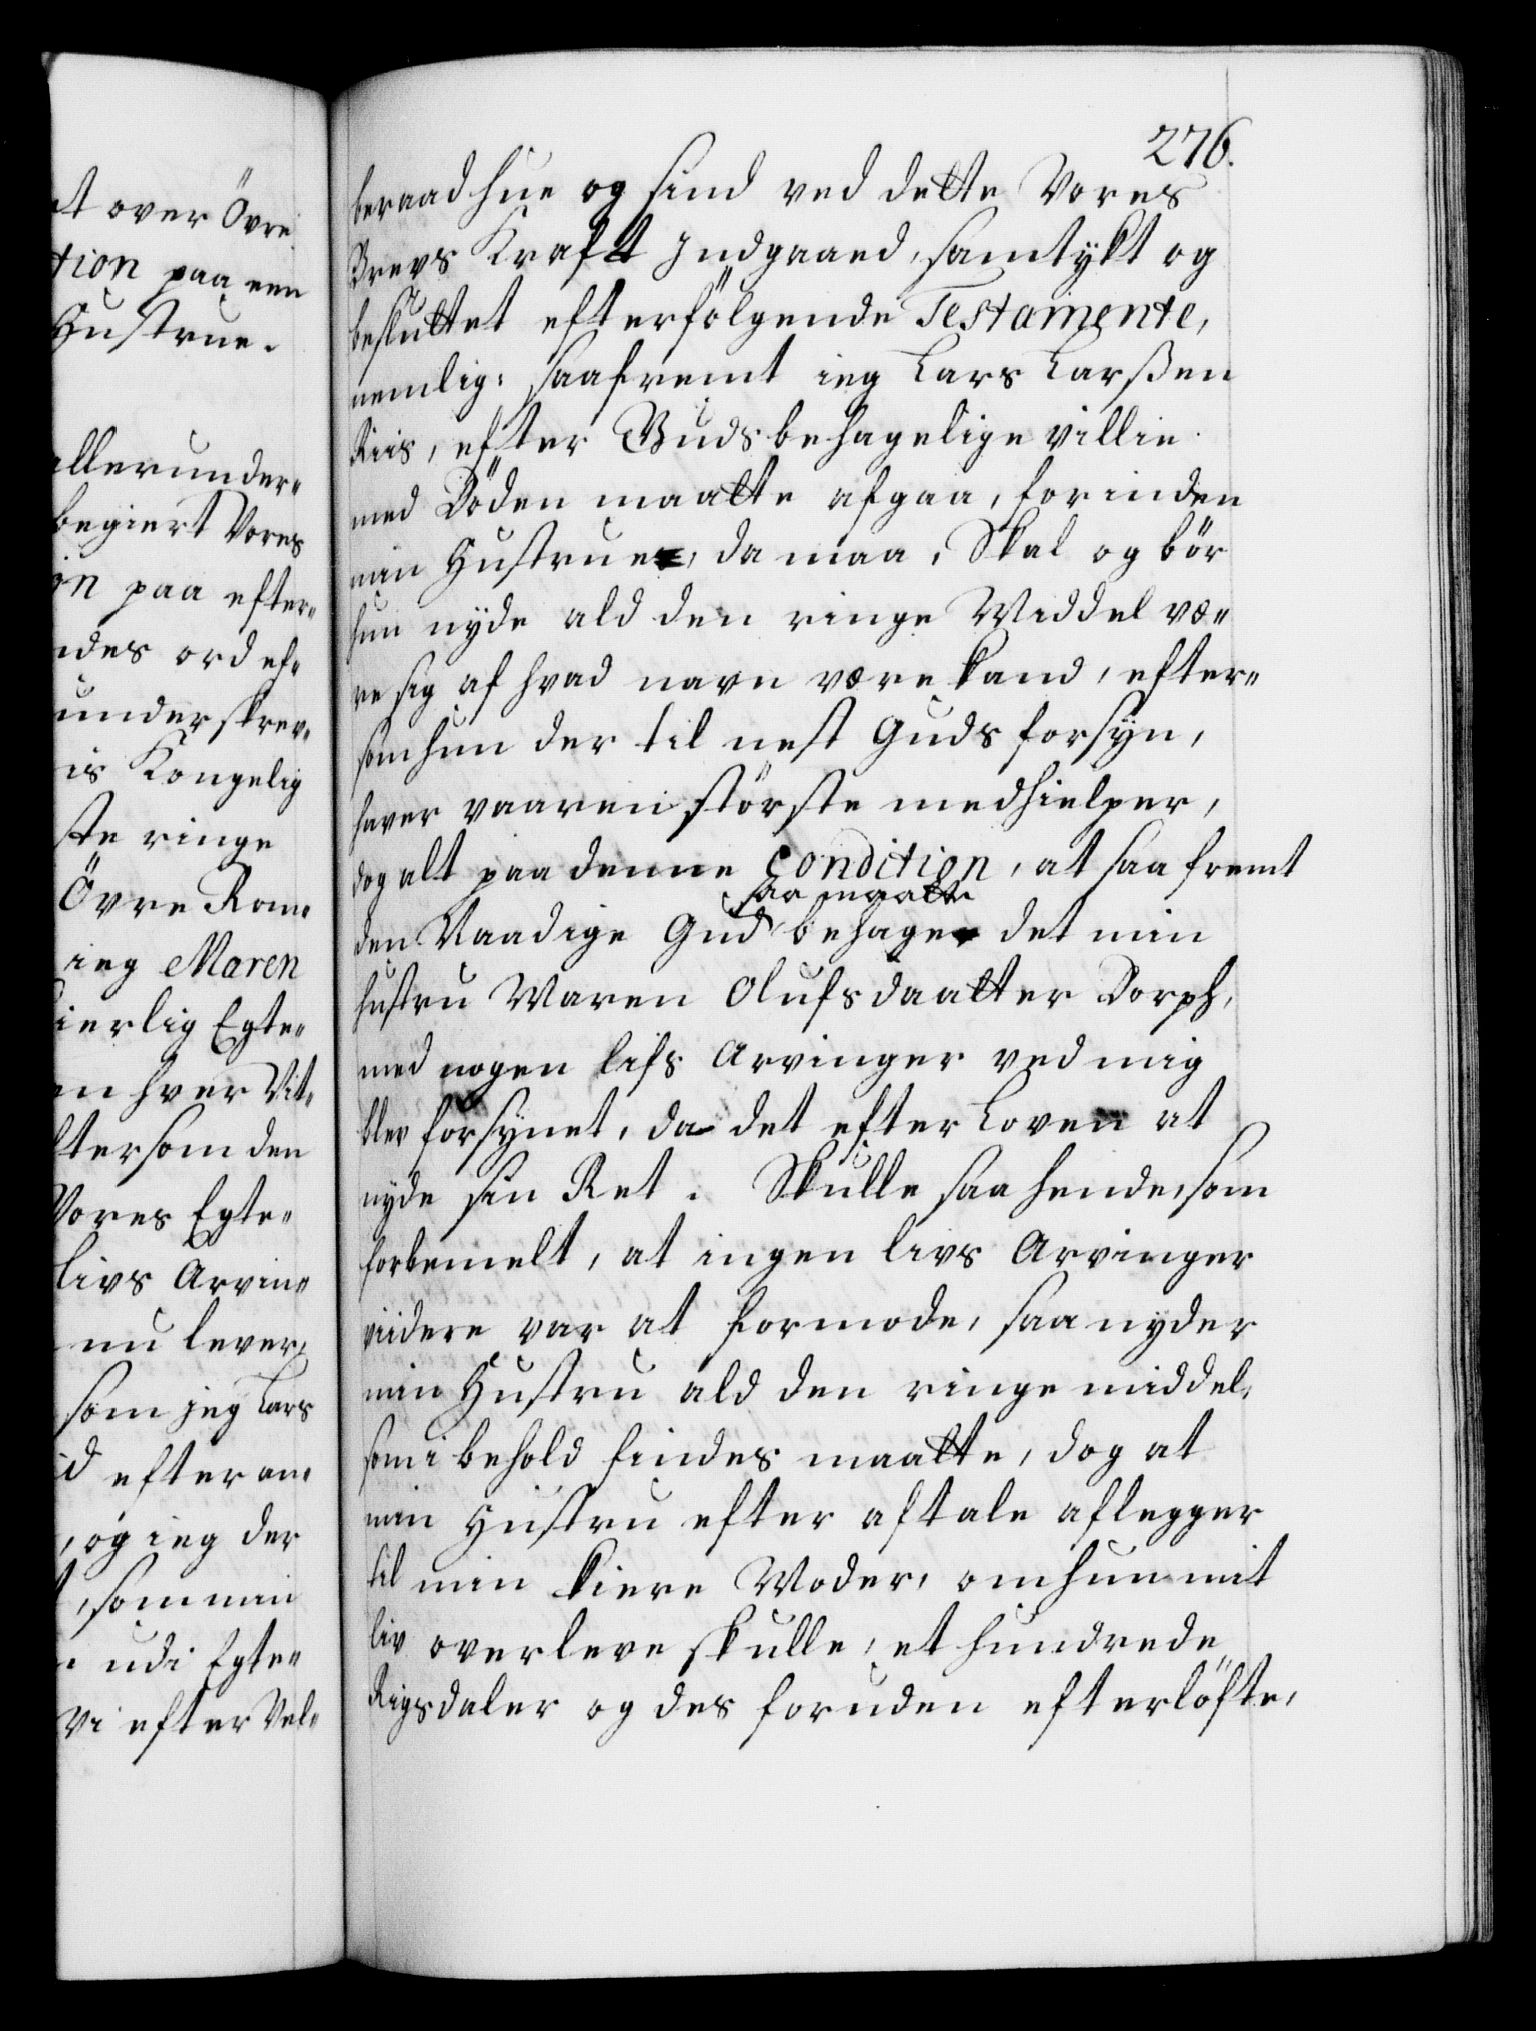 t over Övre
tion paa een
Hustrue.
allerunder-
begiert Vores
on paa efter-
ndes ord ef-
underskrev-
is Kongelig
ste ringe
Övre Rom-
ieg Maren
kierlig Egte-
en hver Vit-
ftersom den
Vores Egte-
livs Arvin-
nu lever,
som jeg Lars
id efter an-
, og ieg der
t, som min
udi Egte-
Vi efter Vel-
276.
beraad hue og sind ved dette Vores
Brevs Kraft Indgaaed, samtykt og
besluttet efterfölgende Testamente,
nemlig: saafremt ieg Lars Larßen
Riis, efter Guds behagelige villie
med Döden maatte afgaa, forinden
min Hustrue, da maa, Skal og bör
hun nyde ald den ringe Middel væ-
re sig af hvad navn være kand, efter-
som hun der til nest Guds forsyn,
haver vaaren störste medhielper,
dog alt paa denne Condition, at saa fremt
saa maatte
den Naadige Gud behage det min
hustru Maren Olufsdaatter Dorph,
med nogen lifs Arvinger ved mig
blev forsynet, da det efter Loven at
nyde sin Ret. Skulle saa hende, som
forbemelt, at ingen livs Arvinger
viidere var at formode, saa nyder
min Hustru ald den ringe middel,
som i behold findes maatte, dog at
min Hustru efter aftale aflegger
til min kiere Moder, om hun mit
liv overleve skulle, et hundrede
Rigsdaler og des foruden efterlöfte,